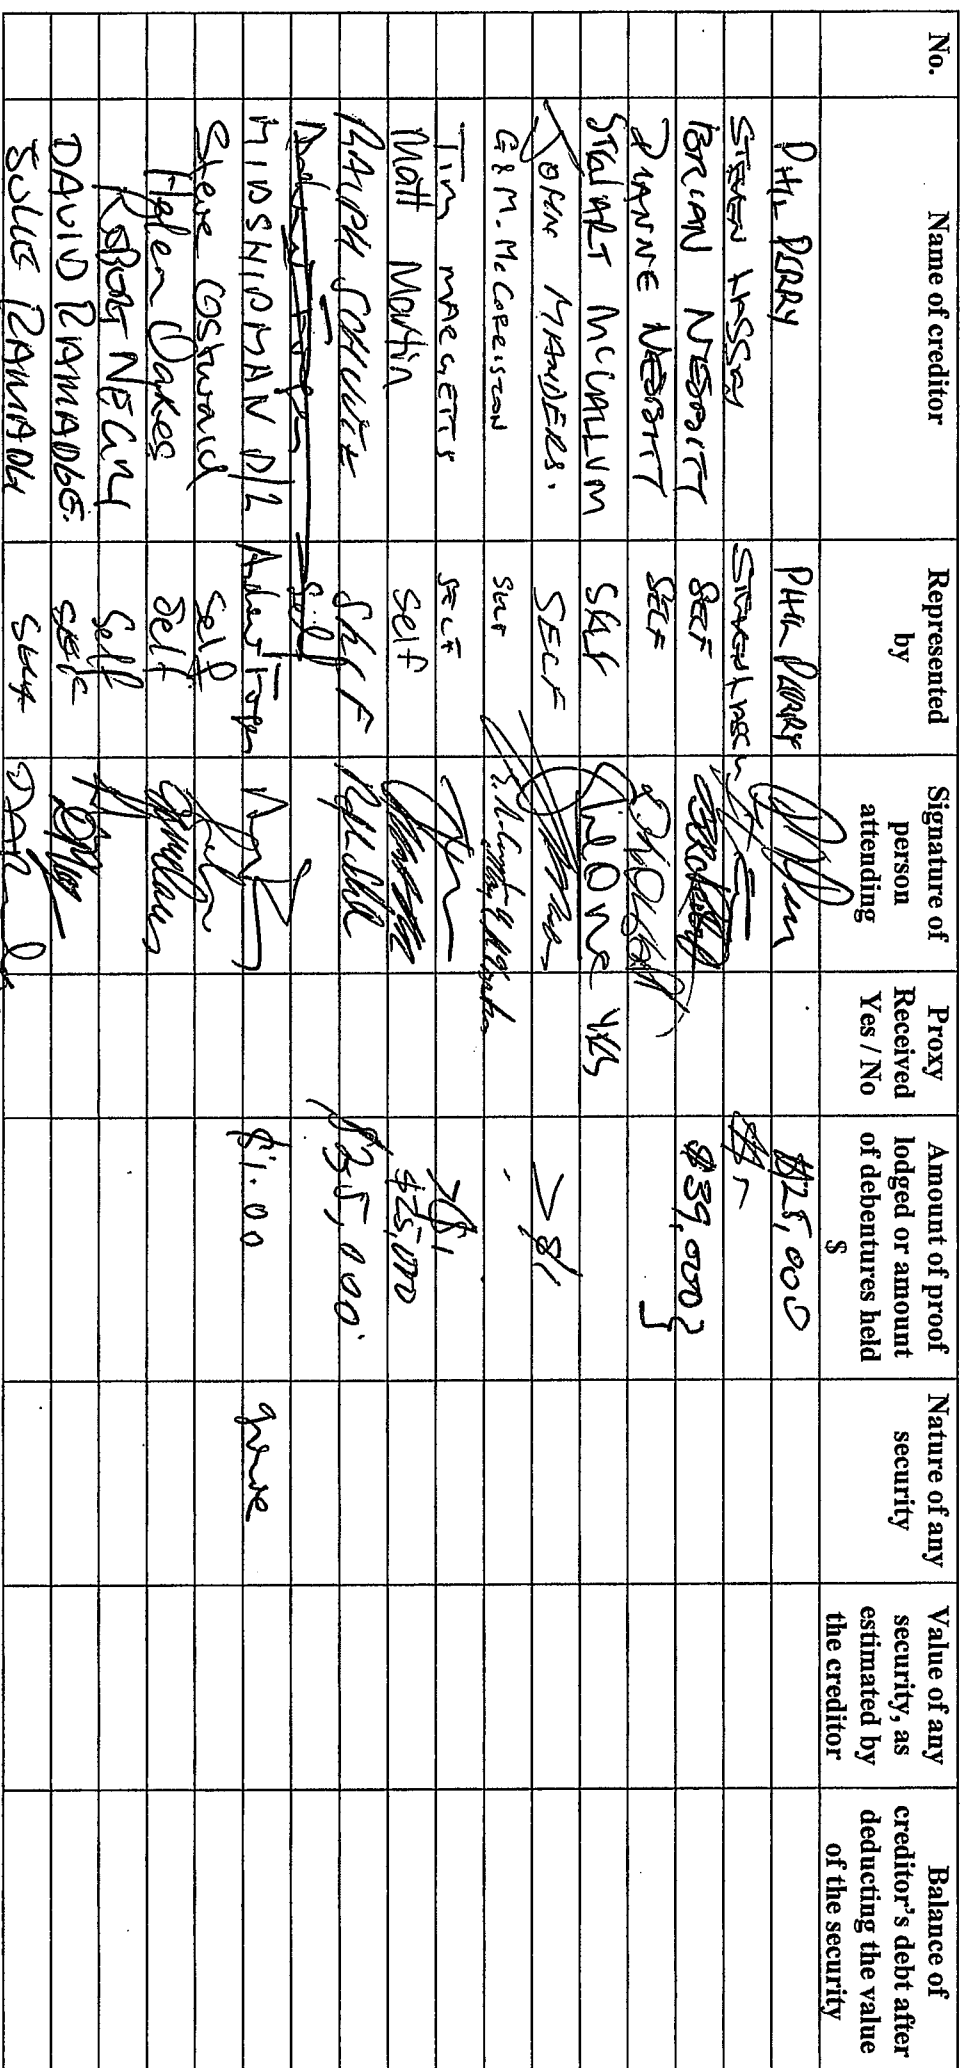 No.
Name of creditor
Represented by
Signature of person attending
Proxy Received Yes / No
Amount of proof lodged or amount of debentures held $
Nature of any security
Value of any security, as estimated by the creditor
Balance of creditor's debt after deducting the value of the security
PHIL PERRY PHIL PERRY $25,000
STEVEN
BRIAN NESBITT SELF $39,000
DIANNE NESBITT SELF
STUART MCCALLUM SELF YES
JOHN MANDERS. SELF > $1
G & M. McCORRISTON SELF
Tim MARGETTS SELF > $1
Matt Martin Self $25,000
RALPH SCHULTZ SELF $35,000
Self
MIDSHIPMAN P/L $1.00
Steve Costwald Self
Helen Oakes Self
ROBERT Self
DAVID RAMADGE. SELF
JULIE RAMADGE SELF